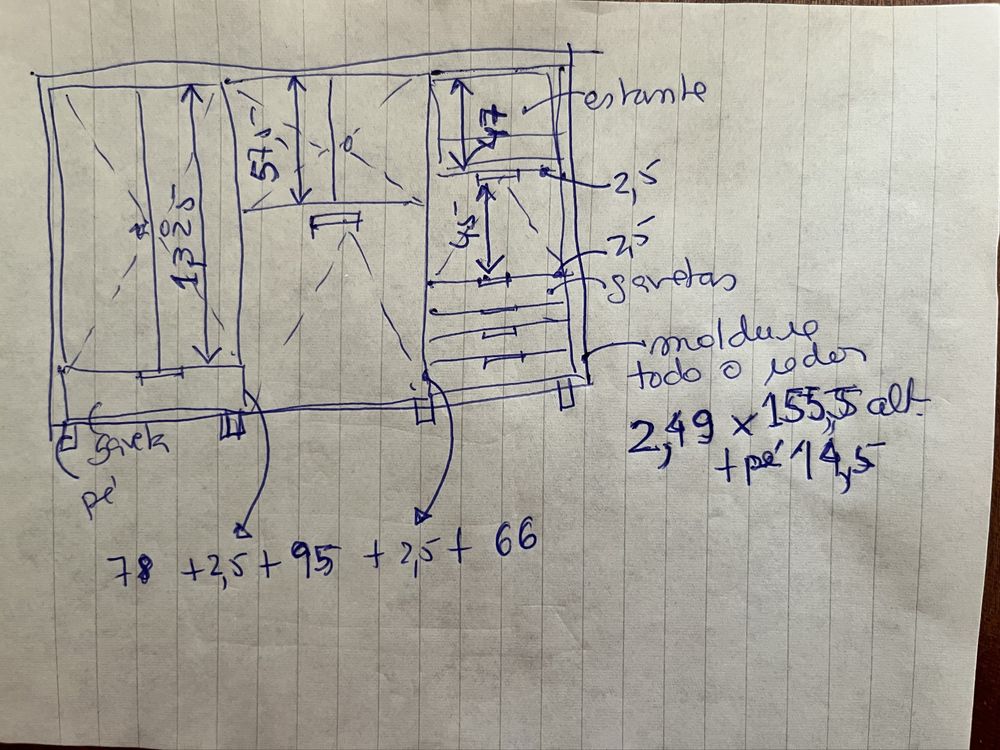 estante
57,5
47
132,5
2,5
45
2,5
gavetas
moldura
todo o redor
2,49 x 155,5 alt.
+ pé 14,5
gaveta
pé
78 + 2,5 + 95 + 2,5 + 66